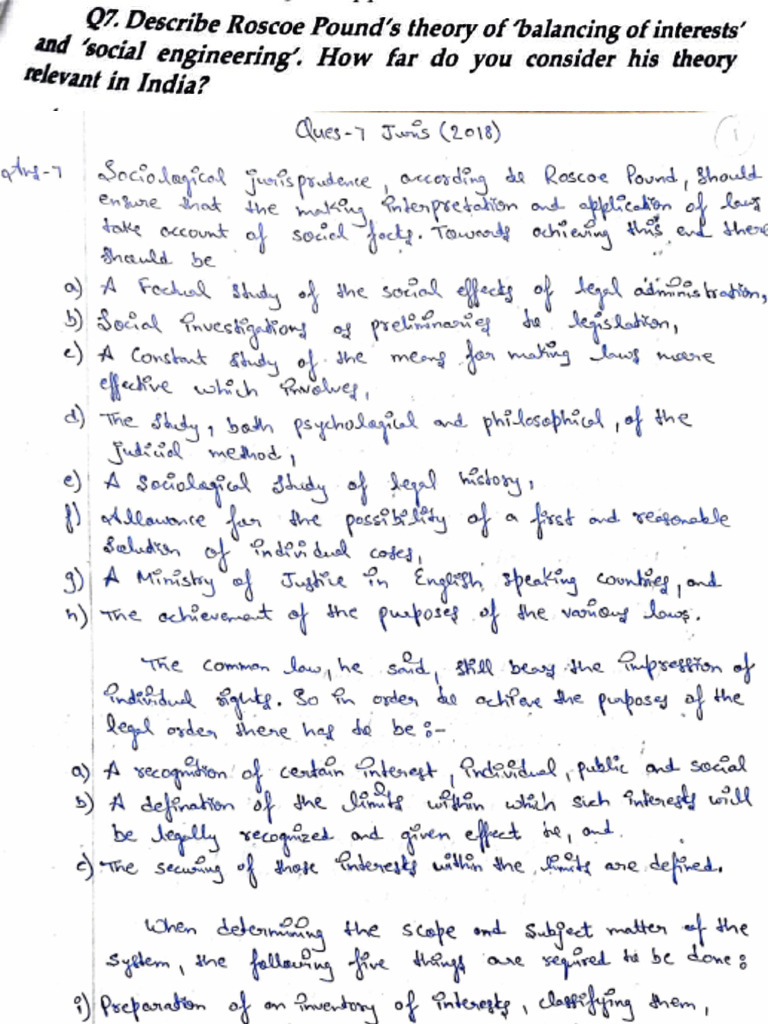 Q7. Describe Roscoe Pound's theory of 'balancing of interests'
and 'social engineering'. How far do you consider his theory
relevant in India?
Ques-7 Juris (2018)
1
Ans-7 Sociological jurisprudence, according to Roscoe Pound, should
ensure that the making interpretation and application of laws
take account of social facts. Towards achieving this end there
should be
a) A Factual study of the social effects of legal administration,
b) Social investigations as preliminaries to legislation,
c) A Constant study of the means for making laws more
effective which involves,
d) The study, both psychological and philosophical, of the
judicial method,
e) A sociological study of legal history,
f) Allowance for the possibility of a first and reasonable
solution of individual cases,
g) A Ministry of Justice in English speaking countries, and
h) The achievement of the purposes of the various laws.
The common law, he said, still bears the impression of
individual rights. So in order to achieve the purposes of the
legal order there has to be :-
a) A recognition of certain interest, individual, public and social
b) A defination of the limits within which such interests will
be legally recognized and given effect to, and.
c) The securing of those interests within the limits are defined.
When determining the scope and subject matter of the
system, the following five things are required to be done :
i) Preparation of an inventory of interests, classifying them,